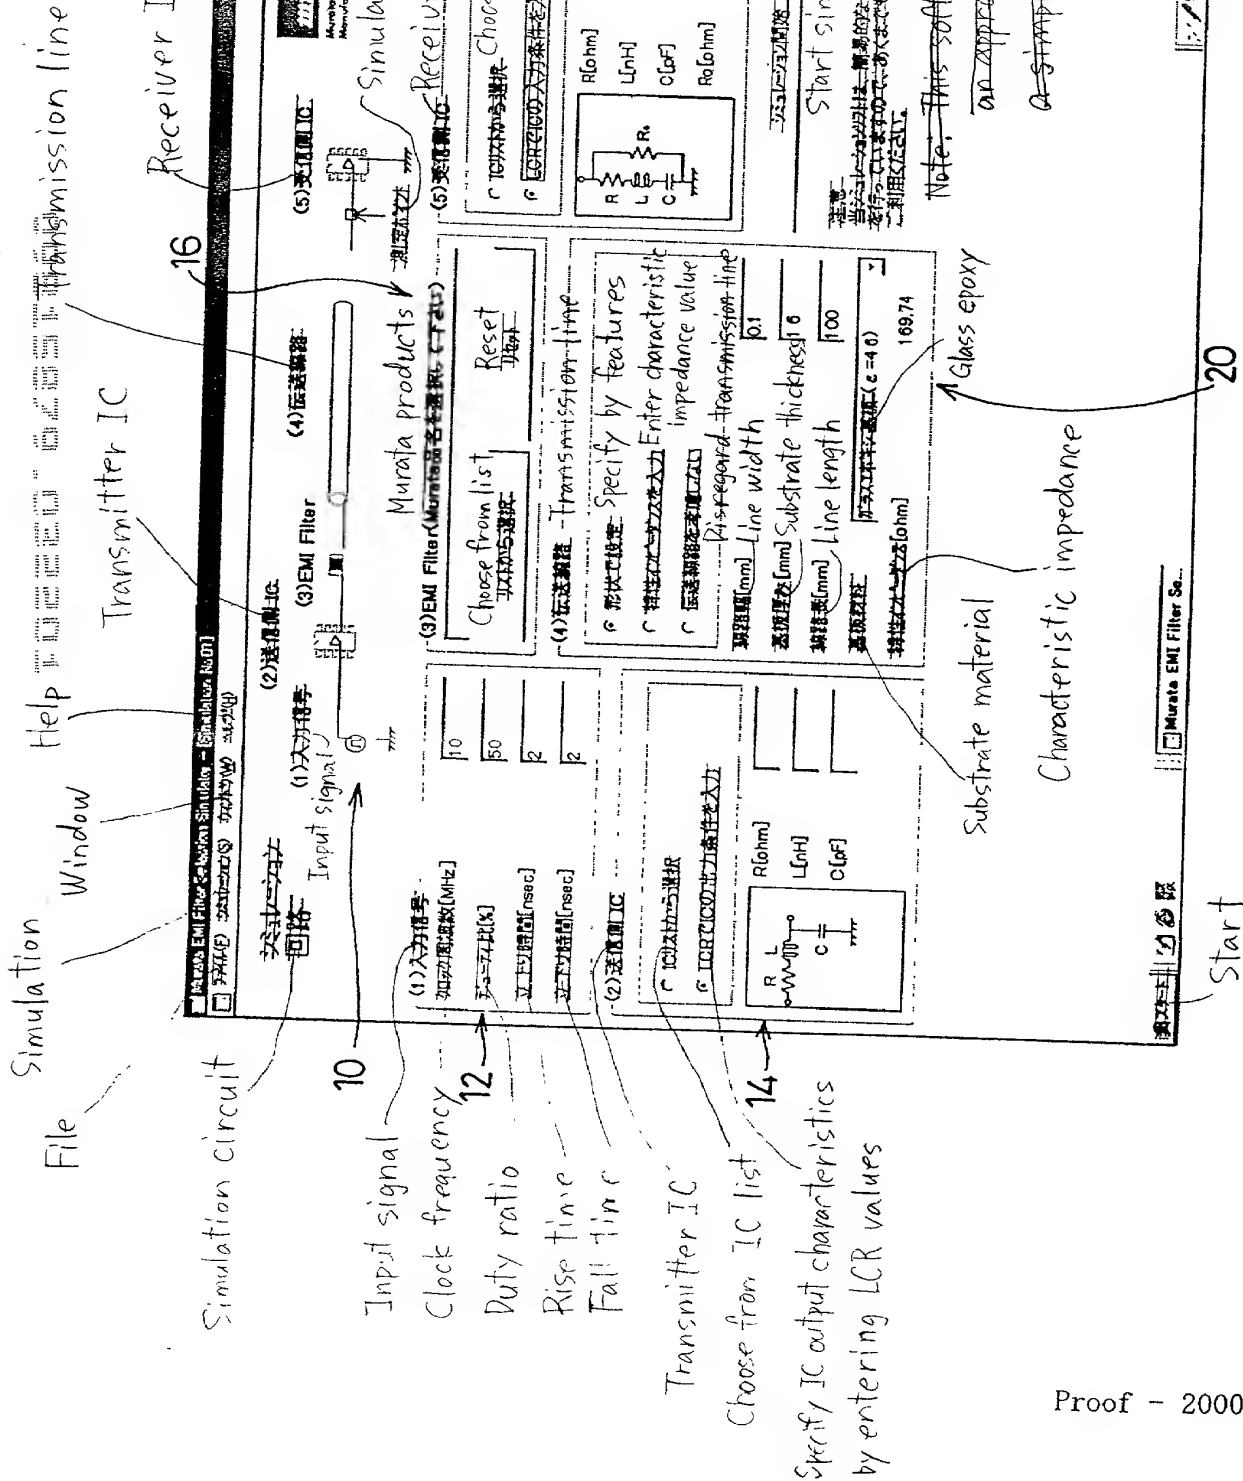 Simulation
File
Window
Help
Transmitter IC
Transmission line
Receiver I
Murata EMI Filter Selection Simulator - [Simulation No.01]
ファイル(F) シミュレーション(S) ウィンドウ(W) ヘルプ(H)
Simulation circuit
シミュレーション
回路
(1)入力信号
Input signal
(2)送信側 IC
(3)EMI Filter
(4)伝送線路
(5)受信側 IC
測定ポイント
Simula
10
16
Input signal
Clock frequency
Duty ratio
Rise time
Fall time
12
(1)入力信号
クロック周波数[MHz]
10
デューティ比[%]
50
立上り時間[nsec]
2
立下り時間[nsec]
2
Transmitter IC
Choose from IC list
Specify IC output characteristics
by entering LCR values
14
(2)送信側 IC
ICリストから選択
LCRでICの出力条件を入力
R L
C
R[ohm]
L[nH]
C[pF]
Murata products
(3)EMI Filter(Murata品名を選択して下さい)
Choose from list
リストから選択
Reset
リセット
(4)伝送線路
Transmission line
形状で設定
Specify by features
特性インピーダンスを入力
Enter characteristic
impedance value
伝送線路を考慮しない
Disregard transmission line
線路幅[mm]
Line width
0.1
基板厚み[mm]
Substrate thickness
1.6
線路長[mm]
Line length
100
基板材料
ガラスエポキシ基板(ε=4.6)
特性インピーダンス[ohm]
169.74
Glass epoxy
20
Substrate material
Characteristic impedance
(5)受信側 IC
Receive
ICリストから選択
Choo
LCRでICの入力条件を入
R
L
C
Ro
R[ohm]
L[nH]
C[pF]
Ro[ohm]
シミュレーション開始
Start sim
注意
当シミュレーションソフトは、簡易的な
を行っていますので、あくまで
ご利用ください。
Note: This soft
an appro
a simp
スタート
Murata EMI Filter Se...
Start
Proof - 2000